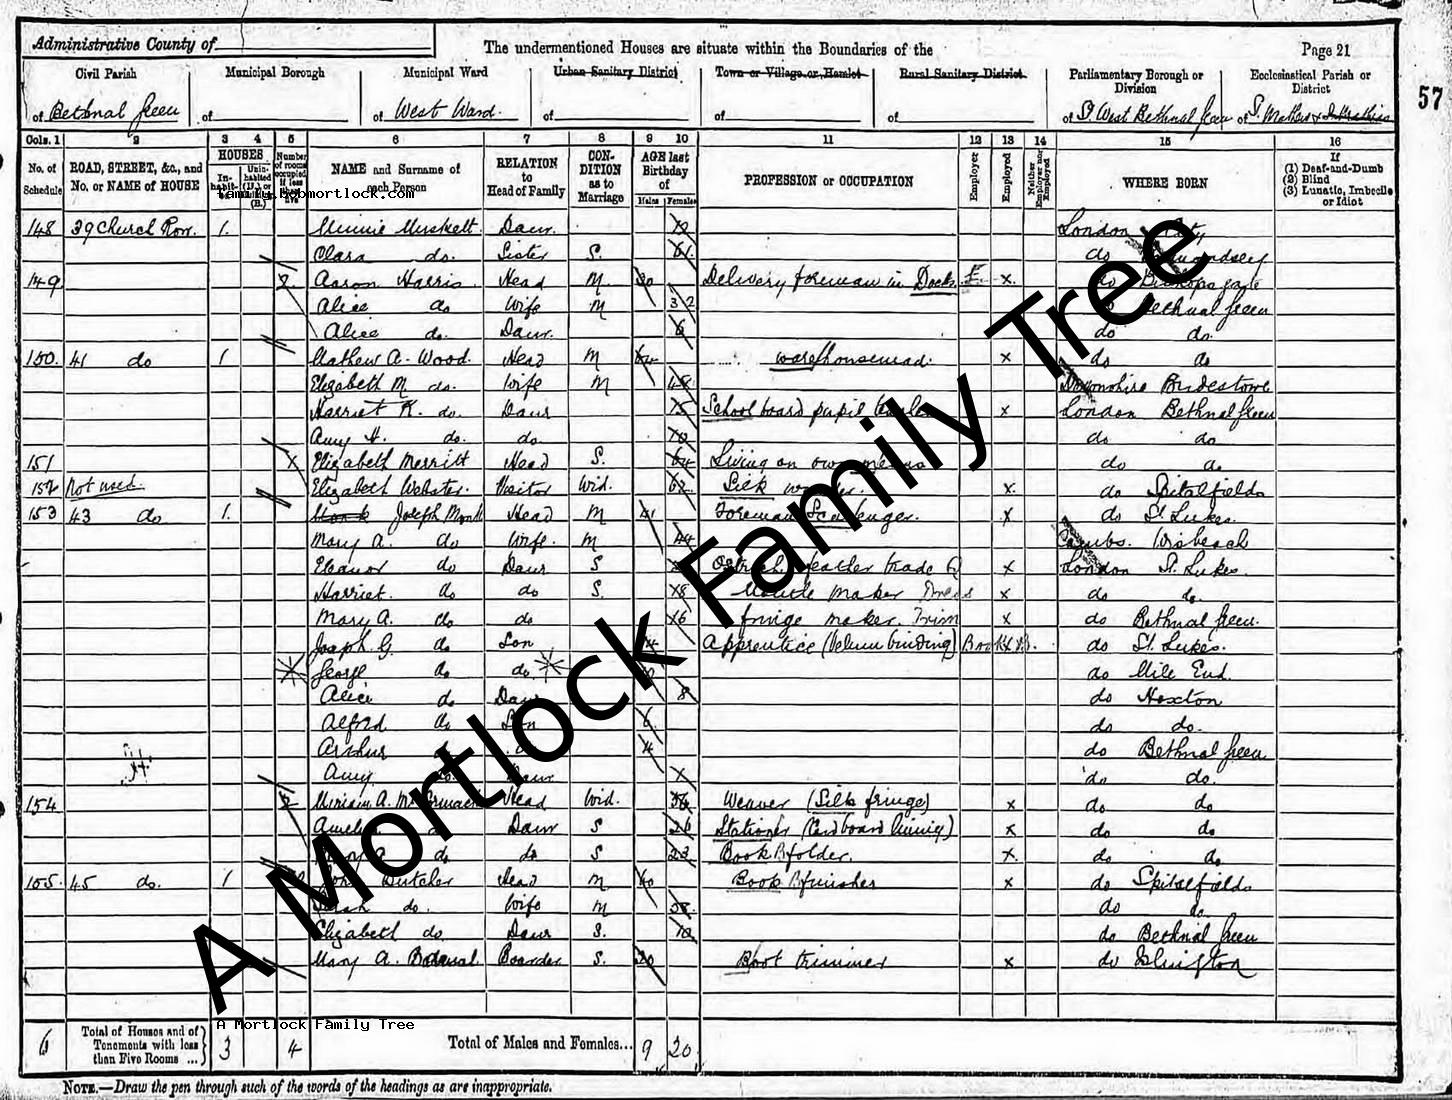 Administrative County of
The undermentioned Houses are situate within the Boundaries of the
Page 21
57
Civil Parish
Municipal Borough
Municipal Ward
Urban Sanitary District
Town or Village or Hamlet
Rural Sanitary District
Parliamentary Borough or Division
Ecclesiastical Parish or District
of Bethnal Green of of West Ward. of of of of St West Bethnal Green of St Mathew
Cols. 1 2 3 4 5 6 7 8 9 10 11 12 13 14 15 16
No. of Schedule
ROAD, STREET, &c., and No. or NAME of HOUSE
HOUSES
NAME and Surname of each Person
RELATION to Head of Family
CONDITION as to Marriage
AGE last Birthday of
Males Females
PROFESSION or OCCUPATION
Employer
Employed
Neither Employer nor Employed
WHERE BORN
If
(1) Deaf-and-Dumb
(2) Blind
(3) Lunatic, Imbecile or Idiot
family.bobmortlock.com
148 39 Church Row. 1. Minnie Muskett Daur. London
Clara do. Sister S. do
149 2 Aaron Harris Head M 30 Delivery foreman in Docks x. do Bishopsgate
Alice do Wife M 32 Bethnal Green
Alice do. Daur. 6 do do.
150. 41 do 1 Mathew A. Wood. Head M warehouseman. x do do
Elizabeth M do. Wife M 48 Devonshire Bridestowe
Harriet K. do. Daur 15 School board pupil teacher x London Bethnal Green
Amy H. do. do. 10 do do
151 x Elizabeth Merritt Head S. 64 Living on own means do do
152 Not used. Elizabeth Webster. Visitor Wid. 62 Silk x. do Spitalfields
153 43 do 1. Joseph Monk Head M 41 Foreman Scavenger. x do St Lukes.
Mary A. do Wife. M 44 Cambs. Wisbeach
Eleanor do Daur S Ostrich feather trade x London St. Lukes.
Harriet. do do S. 18 Mantle maker Dress x do do.
Mary A. do do 16 fringe maker. Trim x do Bethnal Green.
Joseph G. do Son 14 Apprentice (Vellum binding) Book do St. Lukes.
George do do do Mile End.
Alice do Daur 8 do Hoxton
Alfred do Son 6 do do.
Arthur 4 do Bethnal Green
Amy Daur 1 do do.
154 2 Miriam A. Head Wid. 56 Weaver (Silk fringe) x do do
Daur S 26 Stationer (Cardboard lining) x do do
A. do do S 23 Book folder. x. do do.
155. 45 do. 1 Butcher Head M 40 Book finisher x do Spitalfields
Sarah do. Wife M do do.
Elizabeth do. Daur S. 10 do Bethnal Green
Mary A. Boarder S. 20 Boot trimmer x do Islington
A Mortlock Family Tree
A Mortlock Family Tree
6 Total of Houses and of Tenements with less than Five Rooms ... 3 4 Total of Males and Females... 9 20
NOTE.—Draw the pen through such of the words of the headings as are inappropriate.